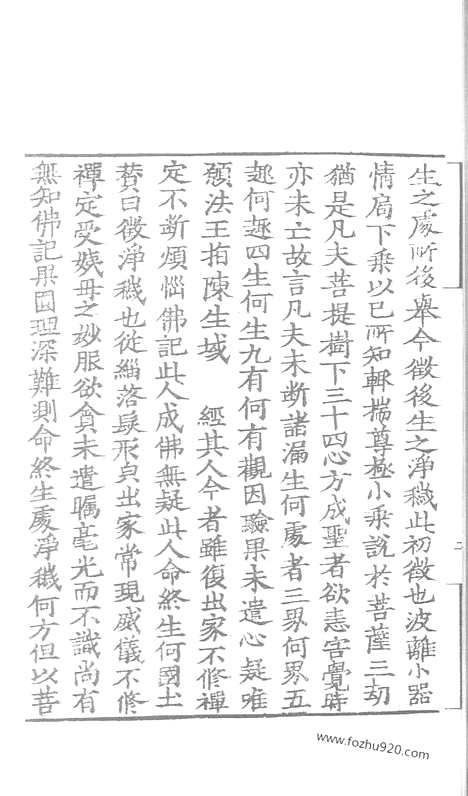 生之處所後舉今徵後生之淨穢此初徵也波離小器
情局下乘以已所知輒揣尊極小乘說於菩薩三劫
猶是凡夫菩提樹下三十四心方成聖者欲恚害覺時
亦未亡故言凡夫未斷諸漏生何處者三界何界五
趣何趣四生何生九有何有觀因驗果未遣心疑唯
願法王指陳生域　經其人今者雖復出家不修禪
定不斷煩惱佛記此人成佛無疑此人命終生何國土
賛曰徵淨穢也從緇落髮形真出家常現威儀不修
禪定受姨母之妙服欲貪未遣矚毫光而不識尚有
無知佛記果圓理深難測命終生處淨穢何方但以菩
二
www.fozhu920.com